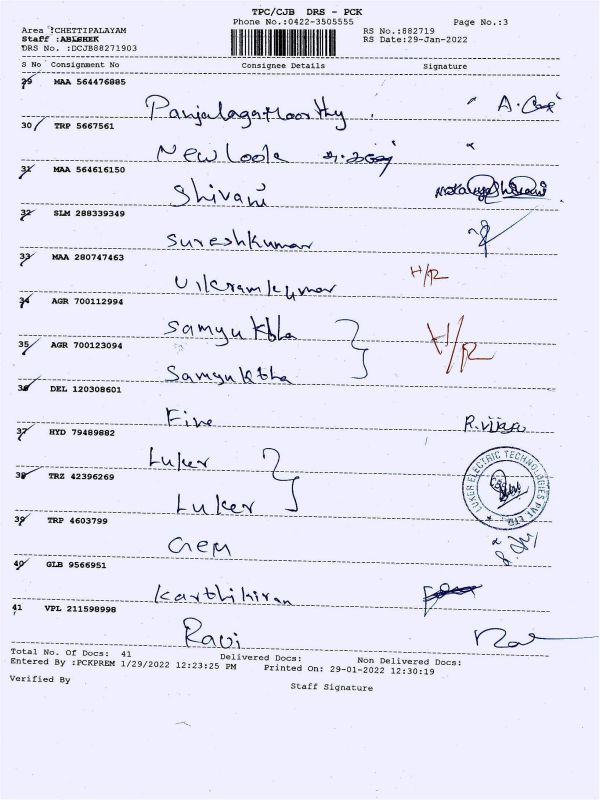 TPC/CJB DRS - PCK
Phone No.:0422-3505555 Page No.:3
Area :CHETTIPALAYAM RS No.:882719
Staff :ABISHEK RS Date:29-Jan-2022
DRS No. :DCJB88271903
S No Consignment No Consignee Details Signature
29 MAA 564476885
30 TRP 5667561
New look
31 MAA 564616150
Shivani
32 SLM 288339349
Sureshkumar
33 MAA 280747463 H/R
Vikramkumar
34 AGR 700112994
Samyuktha H/R
35 AGR 700123094
Samyuktha
36 DEL 120308601
Fine R.vijaya
37 HYD 79489882
Luker
LUKER ELECTRIC TECHNOLOGIES PVT LTD
38 TRZ 42396269
Luker
39 TRP 4603799
Gem
40 GLB 9566951
Karthikiran
41 VPL 211598998
Ravi
Total No. Of Docs: 41 Delivered Docs: Non Delivered Docs:
Entered By :PCKPREM 1/29/2022 12:23:25 PM Printed On: 29-01-2022 12:30:19
Verified By
Staff Signature